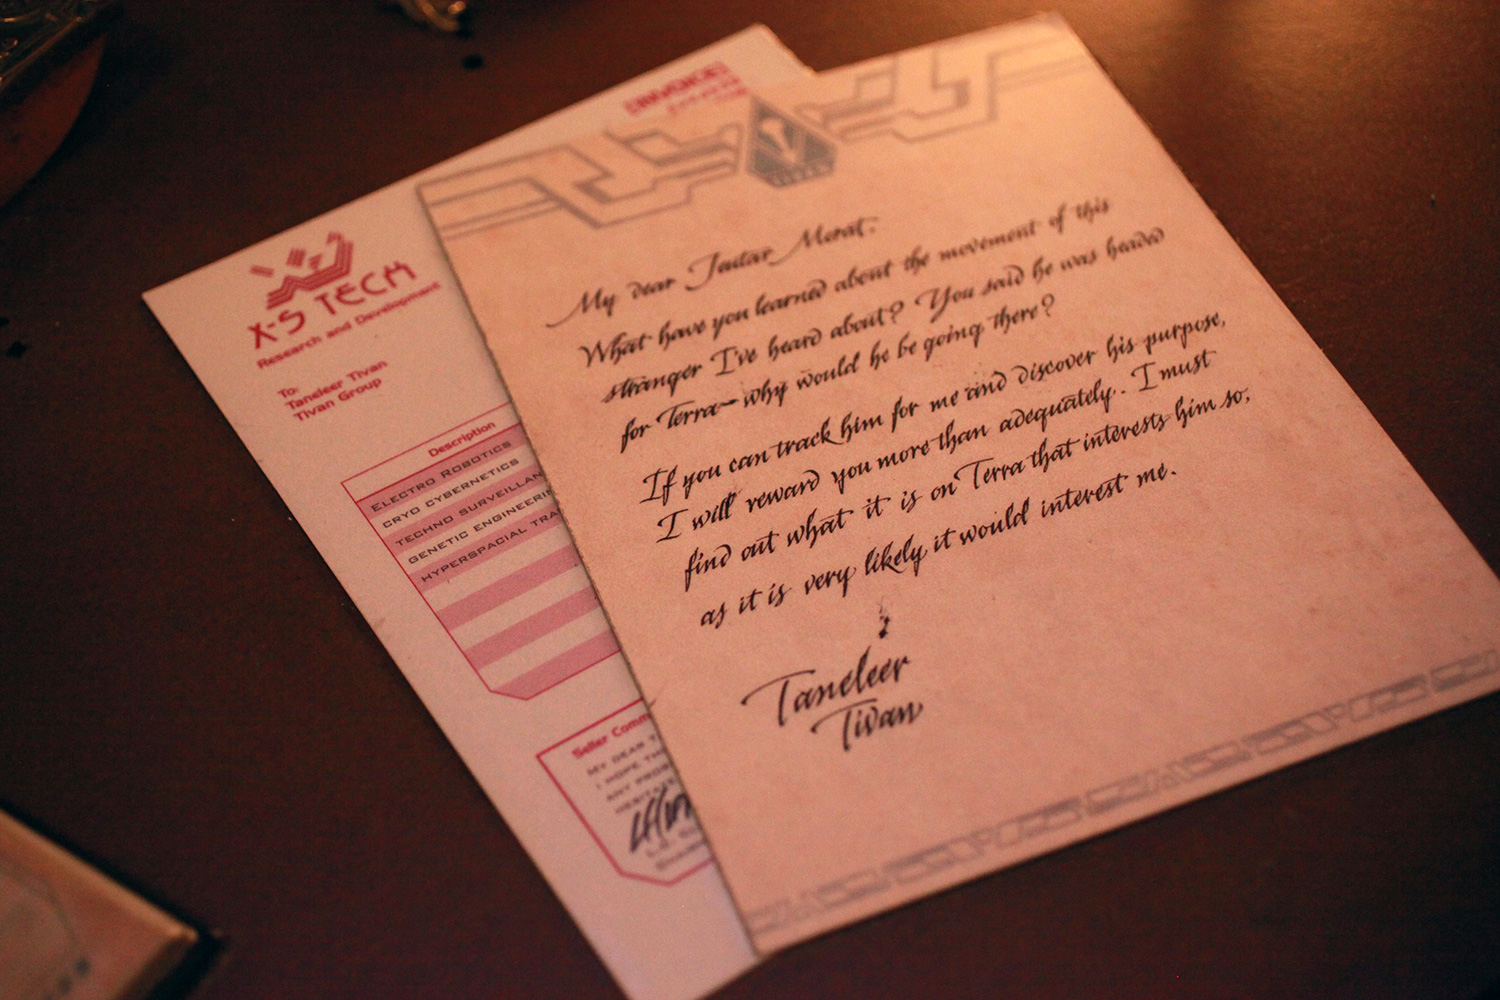 INVOICE
X-S TECH
Research and Development
To:
Taneleer Tivan
Tivan Group
Description
ELECTRO ROBOTICS
CRYO CYBERNETICS
TECHNO SURVEILLAN
GENETIC ENGINEERIN
HYPERSPACIAL TRA
Seller Comm
MY DEAR T
I HOPE TH
ANY PROB
My dear Jadar Morat.
What have you learned about the movement of this
stranger I've heard about? You said he was headed
for Terra—why would he be going there?
If you can track him for me and discover his purpose,
I will reward you more than adequately. I must
find out what it is on Terra that interests him so,
as it is very likely it would interest me.
Taneleer
Tivan